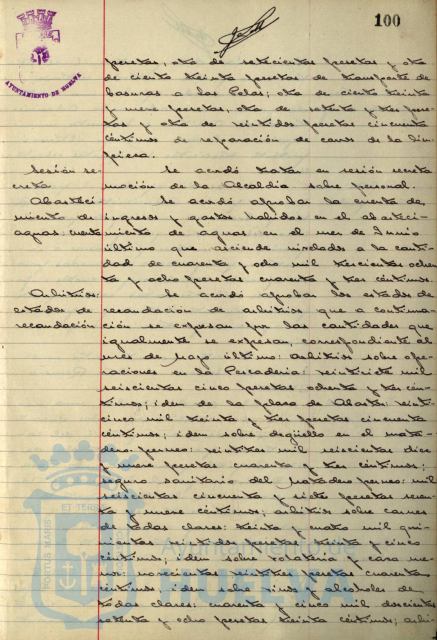 100
AYUNTAMIENTO DE HUELVA
pesetas, otra de setecientas pesetas y otra
de ciento treinta pesetas de transporte de
basuras a las Polas; otra de ciento treinta
y nueve pesetas, otra de setenta y tres pese-
tas y otra de veintidos pesetas cincuenta
céntimos de reparación de carros de la lim-
pieza.
Sesión se-
creta
Se acordó tratar en sesión secreta
moción de la Alcaldia sobre personal.
Abasteci-
miento de
aguas: cuenta
Se acordó aprobar la cuenta de
ingresos y gastos habidos en el abasteci-
miento de aguas en el mes de Junio
último que asciende nivelados a la canti-
dad de cuarenta y ocho mil trescientas ochen-
ta y ocho pesetas cuarenta y tres céntimos.
Arbitrios:
estados de
recaudación
Se acordó aprobar los estados de
recaudación de arbitrios que a continua-
ción se expresan por las cantidades que
igualmente se expresan, correspondiente al
mes de Mayo último: arbitrios sobre ope-
raciones en la Pescaderia: veintisiete mil
seiscientas cinco pesetas ochenta y tres cén-
timos; idem de la plaza de Abastos: veinti-
cinco mil treinta y tres pesetas cincuenta
céntimos; idem sobre degüello en el mata-
dero porcino: veintitres mil seiscientas diez
y nueve pesetas cuarenta y tres céntimos;
seguro sanitario del Matadero porcino: mil
seiscientas cincuenta y siete pesetas sesen-
ta y nueve céntimos; arbitrios sobre carnes
de todas clases: treinta y cuatro mil qui-
nientas veintidos pesetas treinta y cinco
céntimos; idem sobre volateria y caza me-
nor: novecientas veintitres pesetas cuarenta
céntimos; idem sobre vinos y alcoholes de
todas clases: cuarenta y cinco mil doscientas
setenta y ocho pesetas treinta céntimos; arbi-
PORTUS MARIS
ET TERRAE
Ayuntamiento de
HUELVA